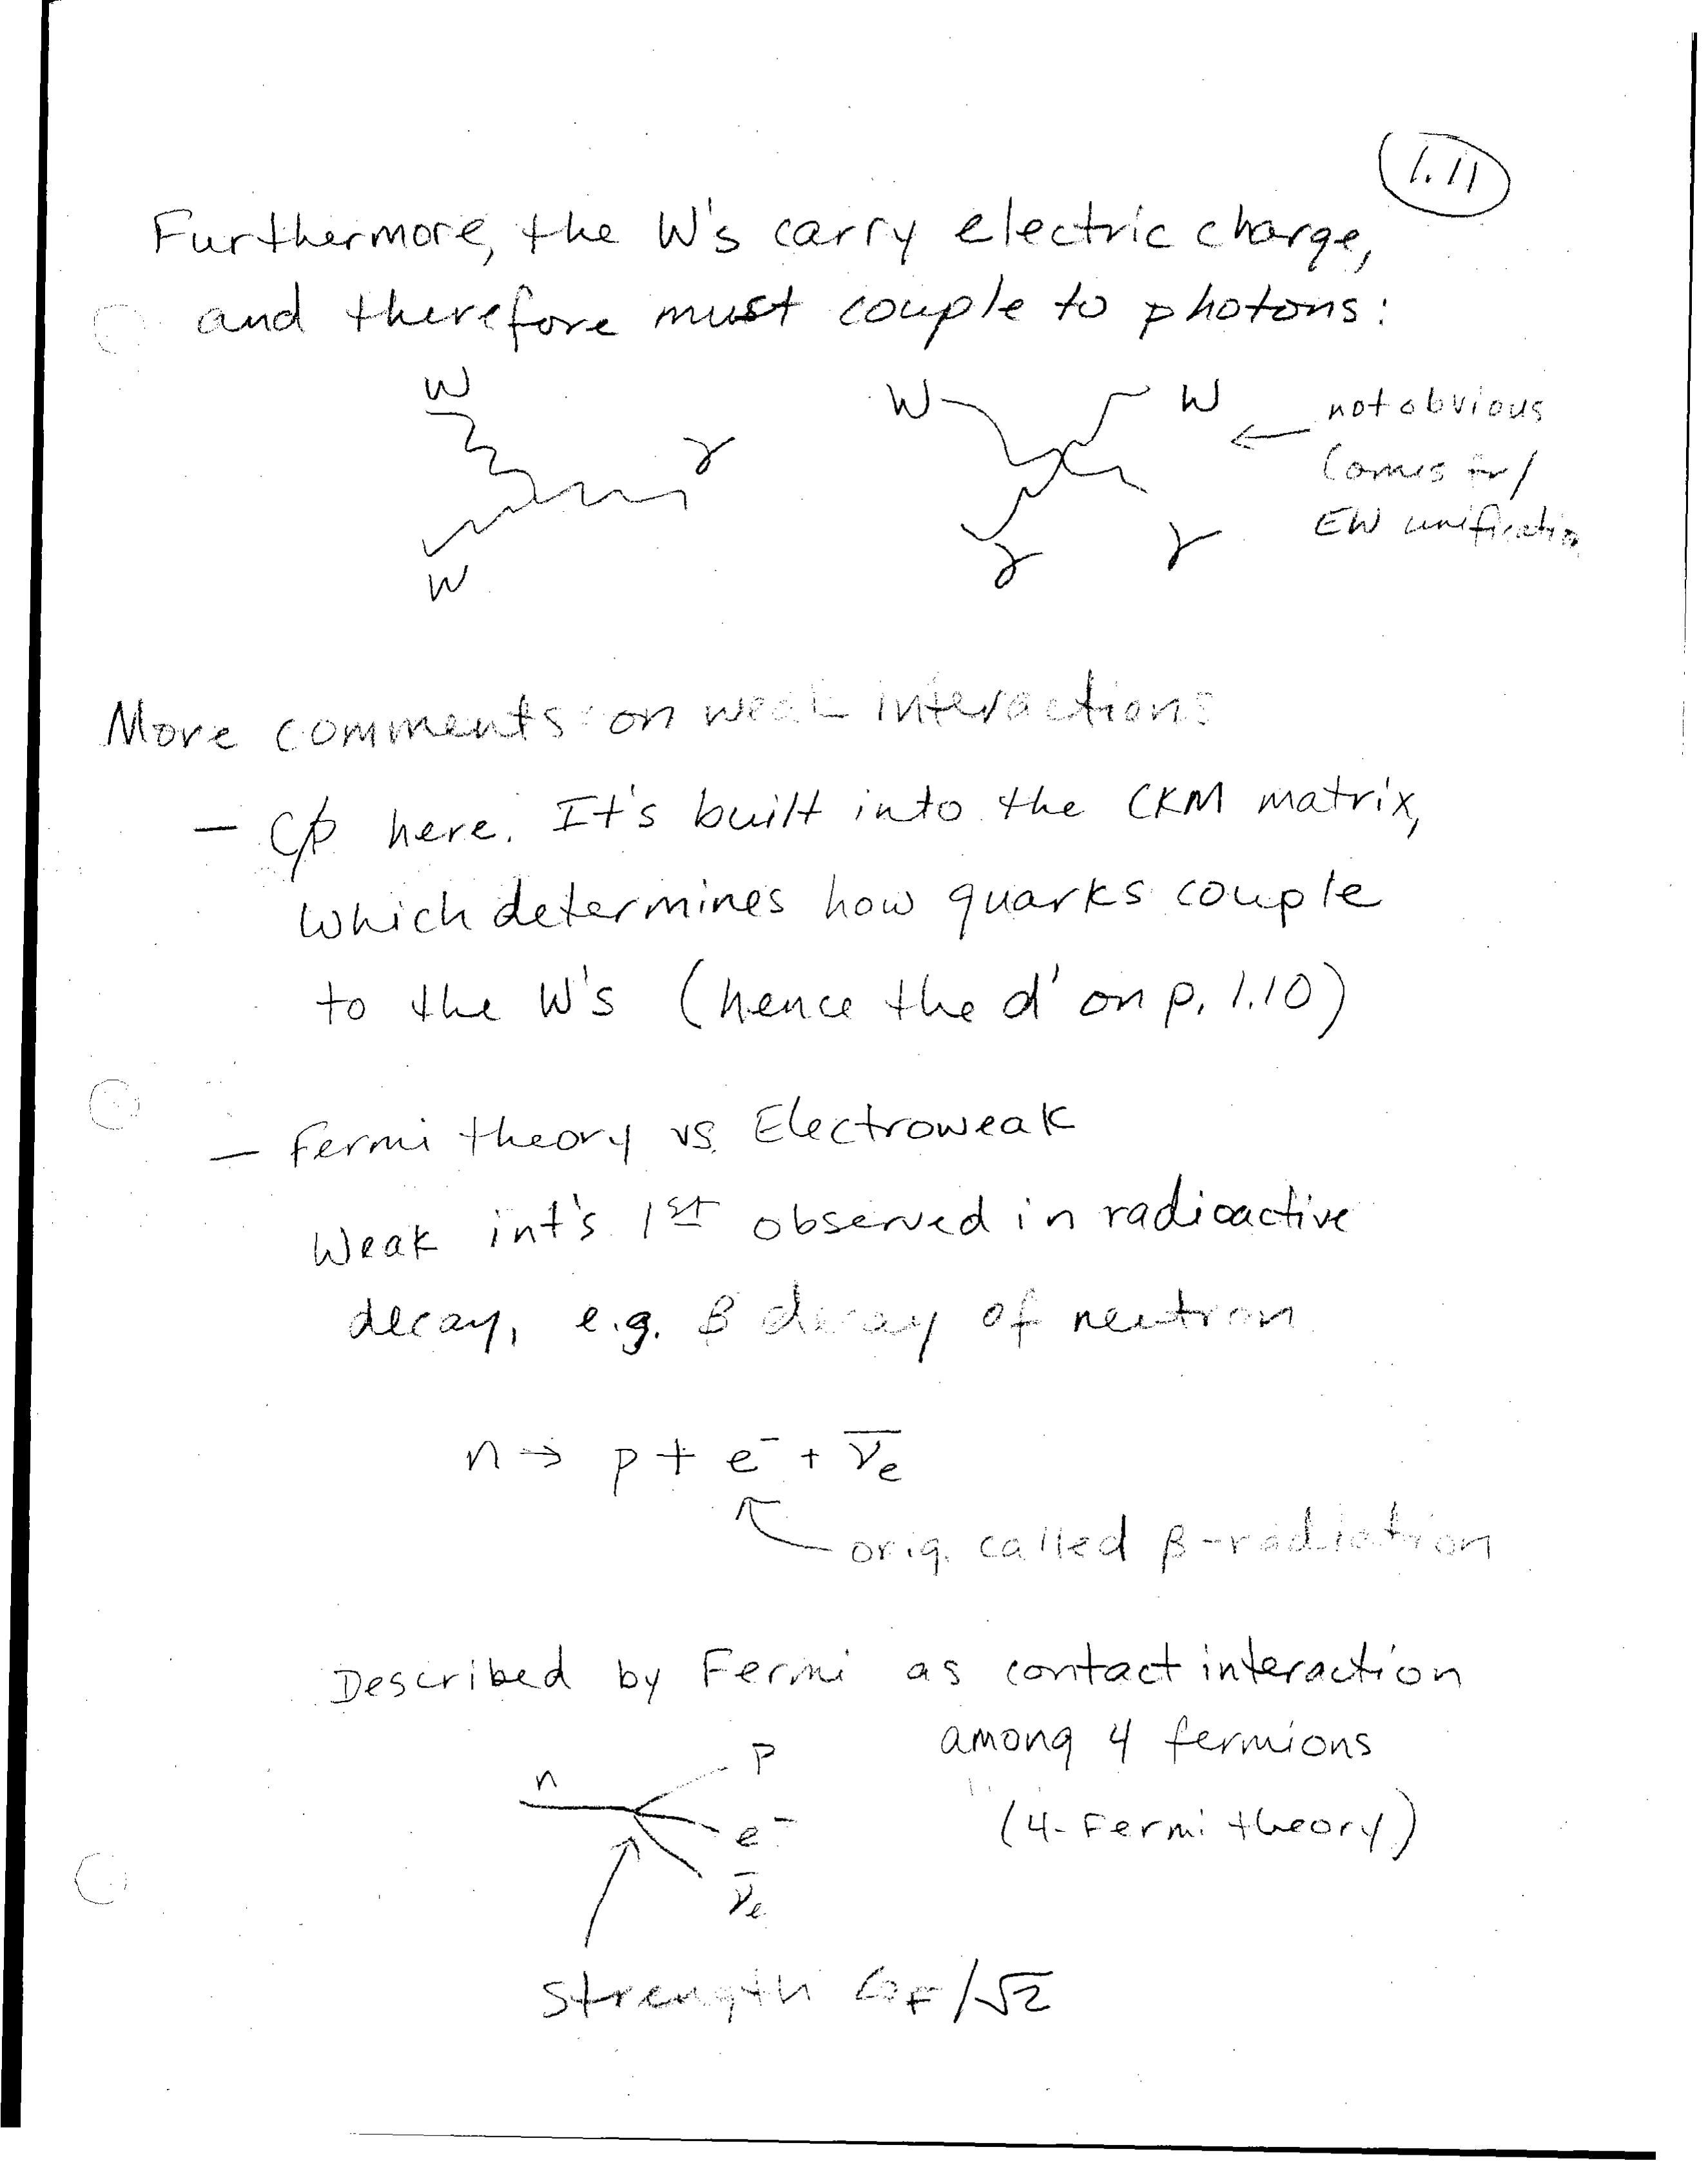 1.11
Furthermore, the W's carry electric charge,
and therefore must couple to photons:
W
γ
W
W
W
γ
γ
← not obvious
Comes fr/
EW unification
More comments on weak interactions
- C̸P̸ here. It's built into the CKM matrix,
which determines how quarks couple
to the W's (hence the d' on p. 1.10)
- Fermi theory vs. Electroweak
Weak int's 1st observed in radioactive
decay, e.g. β decay of neutron
n → p + e⁻ + ν̅e
orig. called β-radiation
Described by Fermi as contact interaction
among 4 fermions
(4-Fermi theory)
n
p
e⁻
ν̅e
strength GF/√2